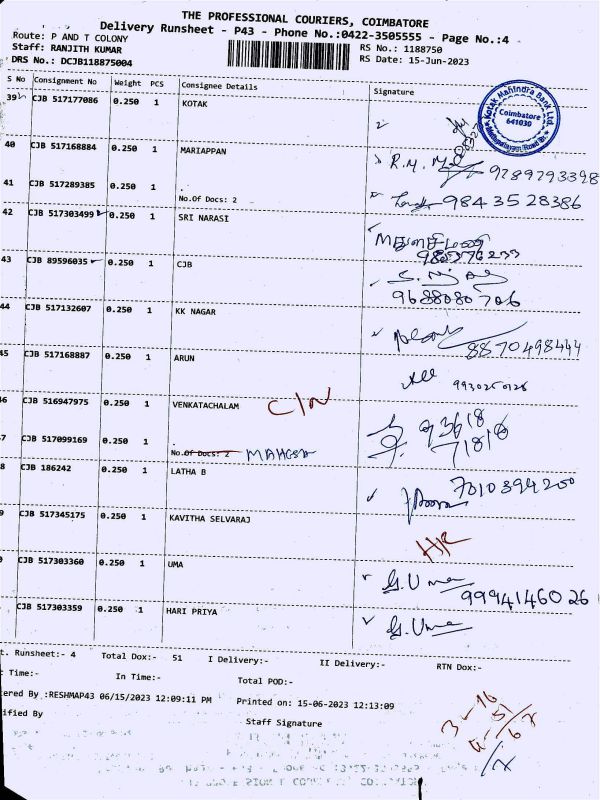 THE PROFESSIONAL COURIERS, COIMBATORE
Delivery Runsheet - P43 - Phone No.:0422-3505555 - Page No.:4
Route: P AND T COLONY
Staff: RANJITH KUMAR
RS No.: 1188750
DRS No.: DCJB118875004
RS Date: 15-Jun-2023
S No Consignment No Weight PCS Consignee Details Signature
39 CJB 517177086 0.250 1 KOTAK
Kotak Mahindra Bank Ltd.
Coimbatore
641030
40 CJB 517168884 0.250 1 MARIAPPAN R.M.
9789793398
41 CJB 517289385 0.250 1 .
No.Of Docs: 2 9843528386
42 CJB 517303499 0.250 1 SRI NARASI
43 CJB 89596035 0.250 1 CJB
9688080706
44 CJB 517132607 0.250 1 KK NAGAR
8870498444
45 CJB 517168887 0.250 1 ARUN
46 CJB 516947975 0.250 1 VENKATACHALAM C/N
93618
71816
47 CJB 517099169 0.250 1 .
No.Of Docs: 2
48 CJB 186242 0.250 1 LATHA B
7010394200
9 CJB 517345175 0.250 1 KAVITHA SELVARAJ
CJB 517303360 0.250 1 UMA G.Uma
9994146026
CJB 517303359 0.250 1 HARI PRIYA G.Uma
t. Runsheet:- 4 Total Dox:- 51 I Delivery:- II Delivery:- RTN Dox:-
Time:- In Time:- Total POD:-
tered By :RESHMAP43 06/15/2023 12:09:11 PM Printed on: 15-06-2023 12:13:09
ified By Staff Signature
3 - 16